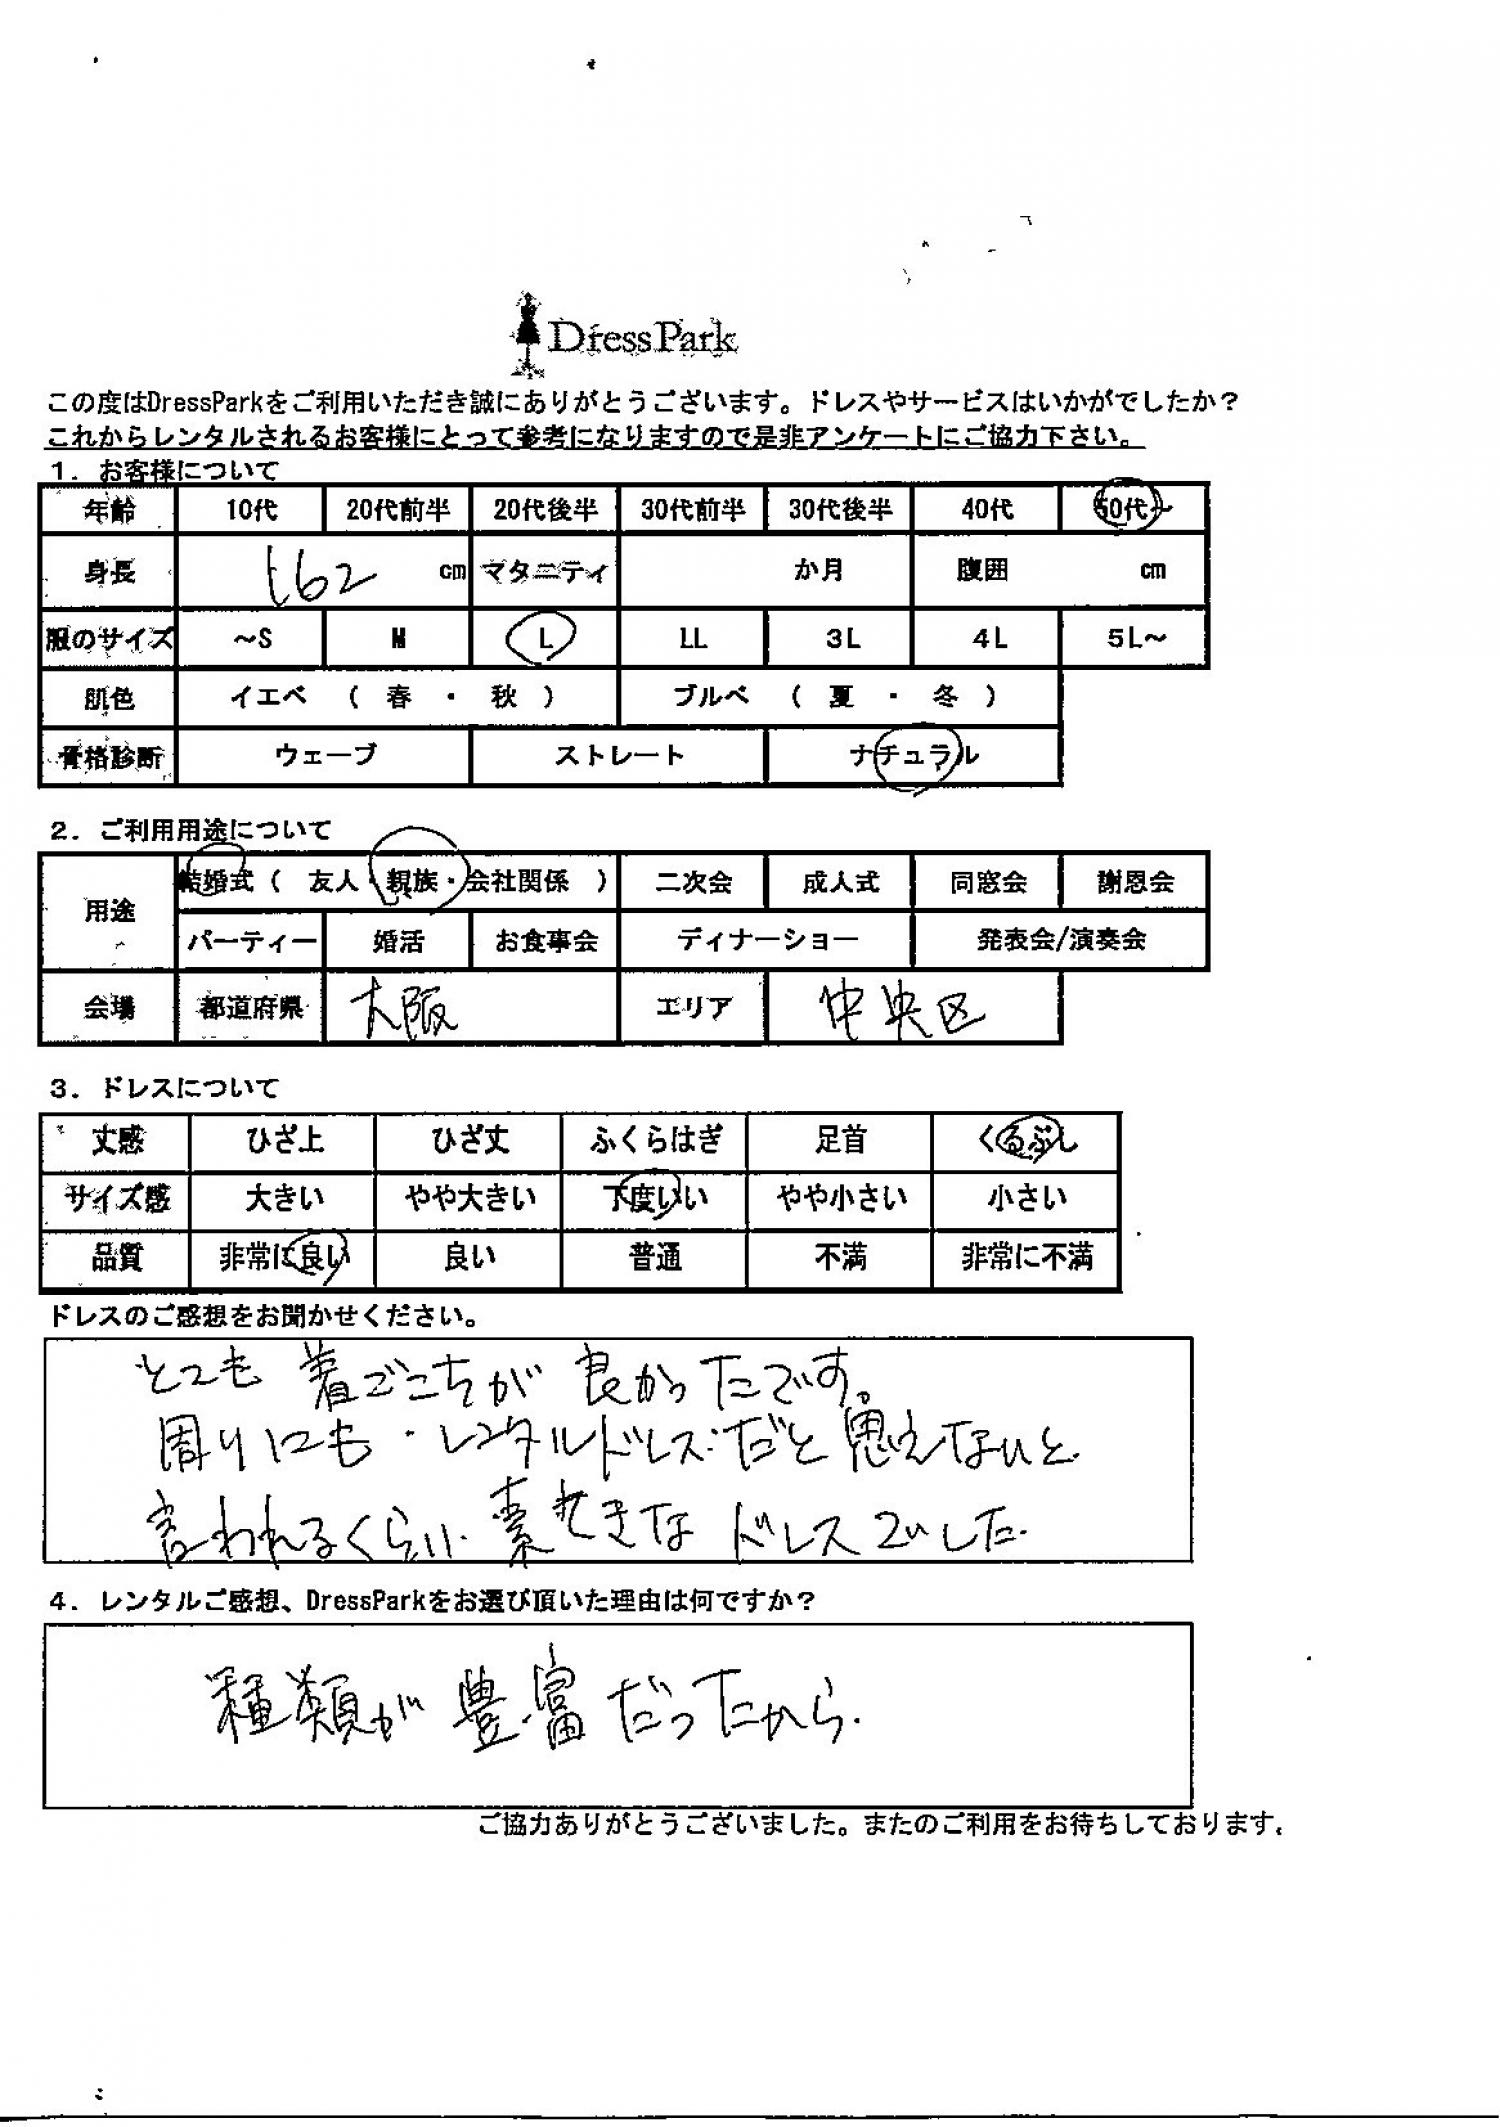 DressPark
この度はDressParkをご利用いただき誠にありがとうございます。ドレスやサービスはいかがでしたか？
これからレンタルされるお客様にとって参考になりますので是非アンケートにご協力下さい。
1. お客様について
年齢 10代 20代前半 20代後半 30代前半 30代後半 40代 50代～
身長 162 cm マタニティ か月 腹囲 cm
服のサイズ ～S M L LL 3L 4L 5L～
肌色 イエベ （ 春 ・ 秋 ） ブルベ （ 夏 ・ 冬 ）
骨格診断 ウェーブ ストレート ナチュラル
2. ご利用用途について
用途 結婚式（ 友人・親族・会社関係 ） 二次会 成人式 同窓会 謝恩会
パーティー 婚活 お食事会 ディナーショー 発表会/演奏会
会場 都道府県 大阪 エリア 中央区
3. ドレスについて
丈感 ひざ上 ひざ丈 ふくらはぎ 足首 くるぶし
サイズ感 大きい やや大きい 丁度いい やや小さい 小さい
品質 非常に良い 良い 普通 不満 非常に不満
ドレスのご感想をお聞かせください。
とても 着ごこちが 良かったです。
周りにも・レンタルドレスだと思えないと
言われるくらい 素てきな ドレスでした.
4. レンタルご感想、DressParkをお選び頂いた理由は何ですか？
種類が 豊富だったから.
ご協力ありがとうございました。またのご利用をお待ちしております。